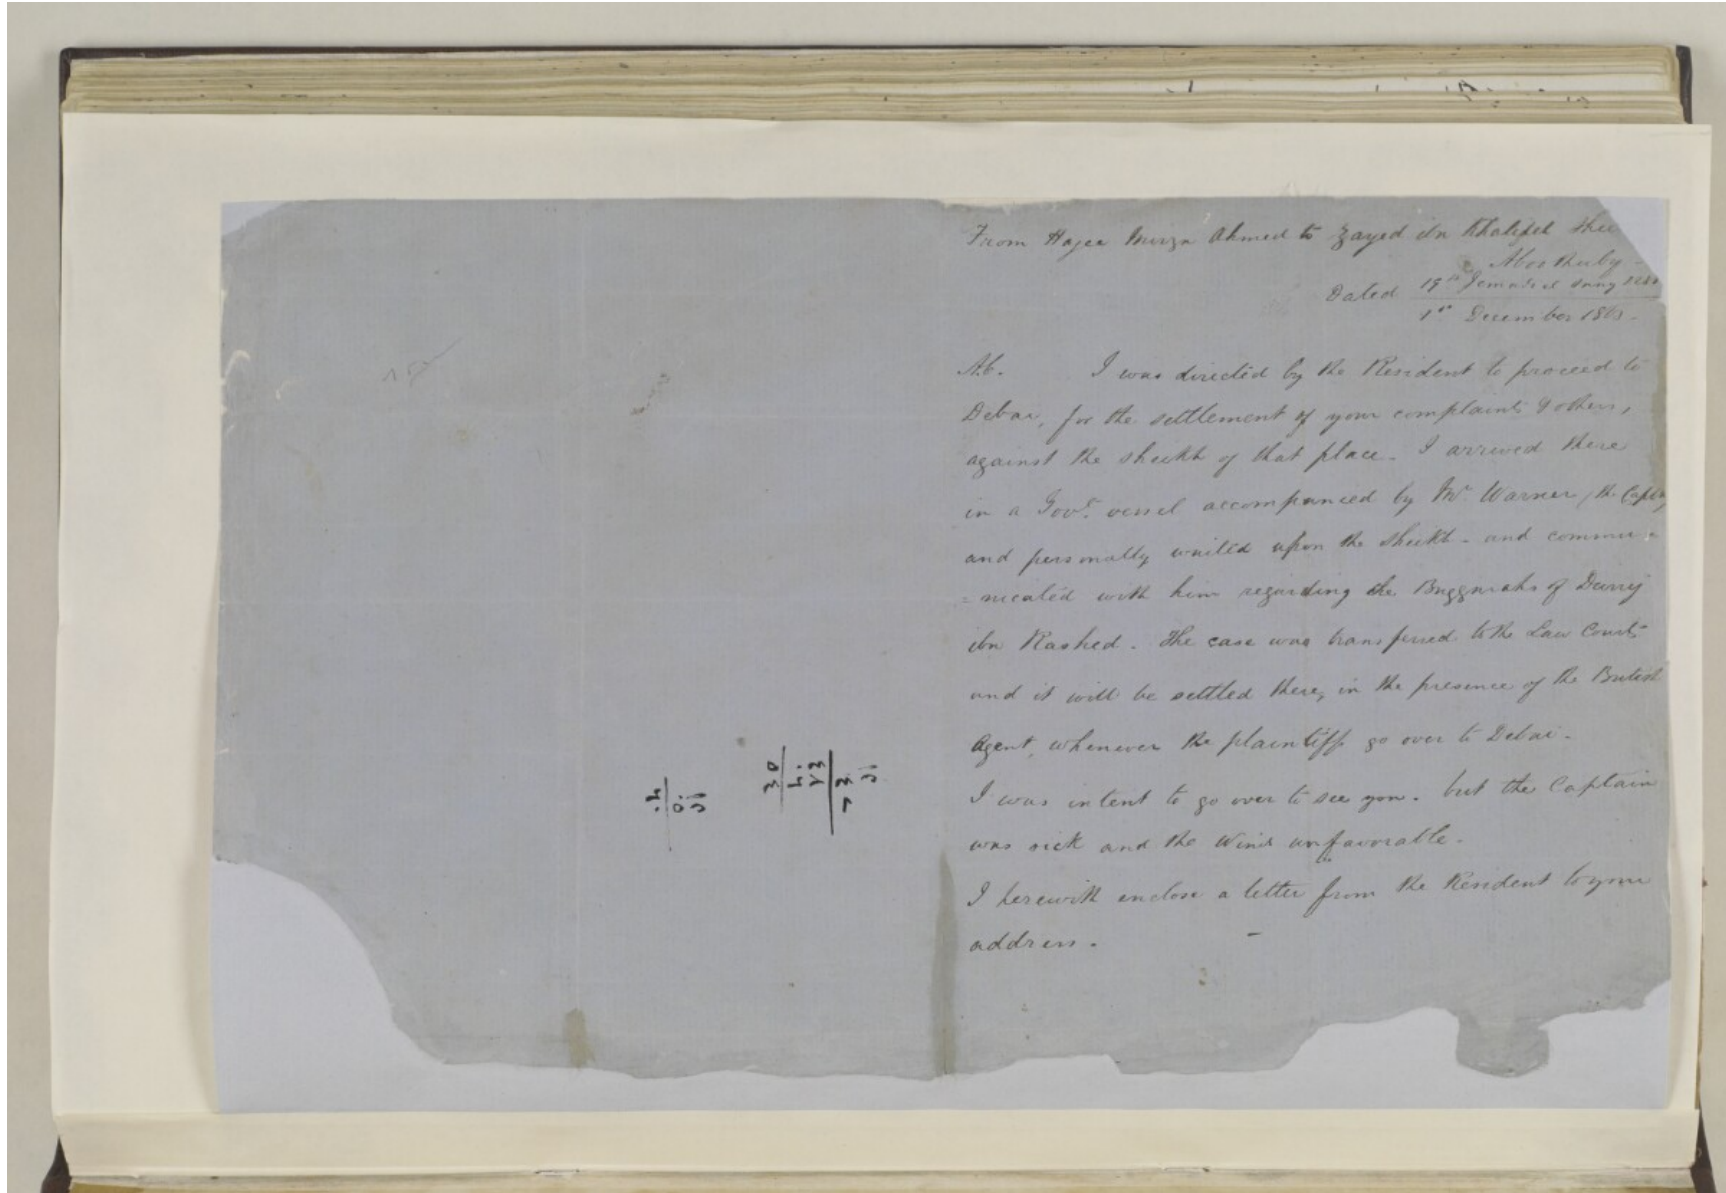 From Hajee Mirza Ahmed to Zayed ibn Khalifeh
Aboothuby -
Dated 19th Jemadiel Sany
1st December 186
A.C. I was directed by the Resident to proceed to
Debai, for the settlement of your complaints & others,
against the sheikh of that place. I arrived there
in a Govt. vessel accompanied by Mr. Warner, the Captn,
and personally waited upon the Sheikh - and commu=
=nicated with him regarding the Buggarahs of
ibn Rashed. The case was transferred to the Law Court
and it will be settled there, in the presence of the British
Agent, whenever the plaintiff go over to Debai.
I was intent to go over to see you. but the Captain
was sick and the Wind unfavorable.
I herewith enclose a letter from the Resident to your
address. -